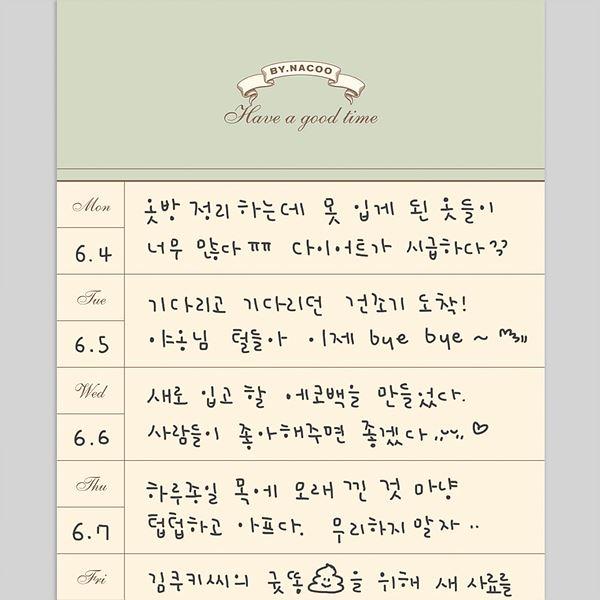 BY.NACOO
Have a good time
Mon
6.4
옷방 정리하는데 못 입게 된 옷들이
너무 많다ㅠㅠ 다이어트가 시급하다??
Tue
6.5
기다리고 기다리던 건조기 도착!
야옹님 털들아 이제 bye bye ~
Wed
6.6
새로 입고 할 에코백을 만들었다.
사람들이 좋아해주면 좋겠다 ♡
Thu
6.7
하루종일 목에 모래 낀 것 마냥
텁텁하고 아프다. 무리하지말자..
Fri
김쿠키씨의 굿똥💩을 위해 새 사료를